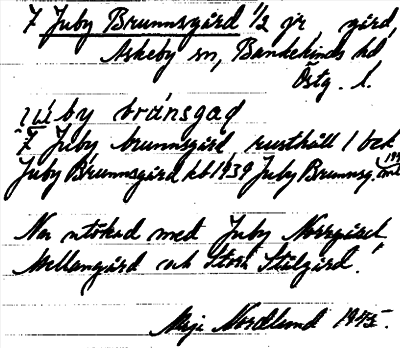 7 Juby Brunnsgård 1/2 jr gård,
Askeby sn, Bankekinds hd
Östg. l.
ɿú̀by brànsgaḍ
"7 Juby brunnsgård, rusthåll 1 och
Juby Brunnsgård kb 1939 Juby Brunnsg.
Nu utökad med Juby Norrgård
Mellangård och Stora Stålgård."
Maja Nordlund 1945.